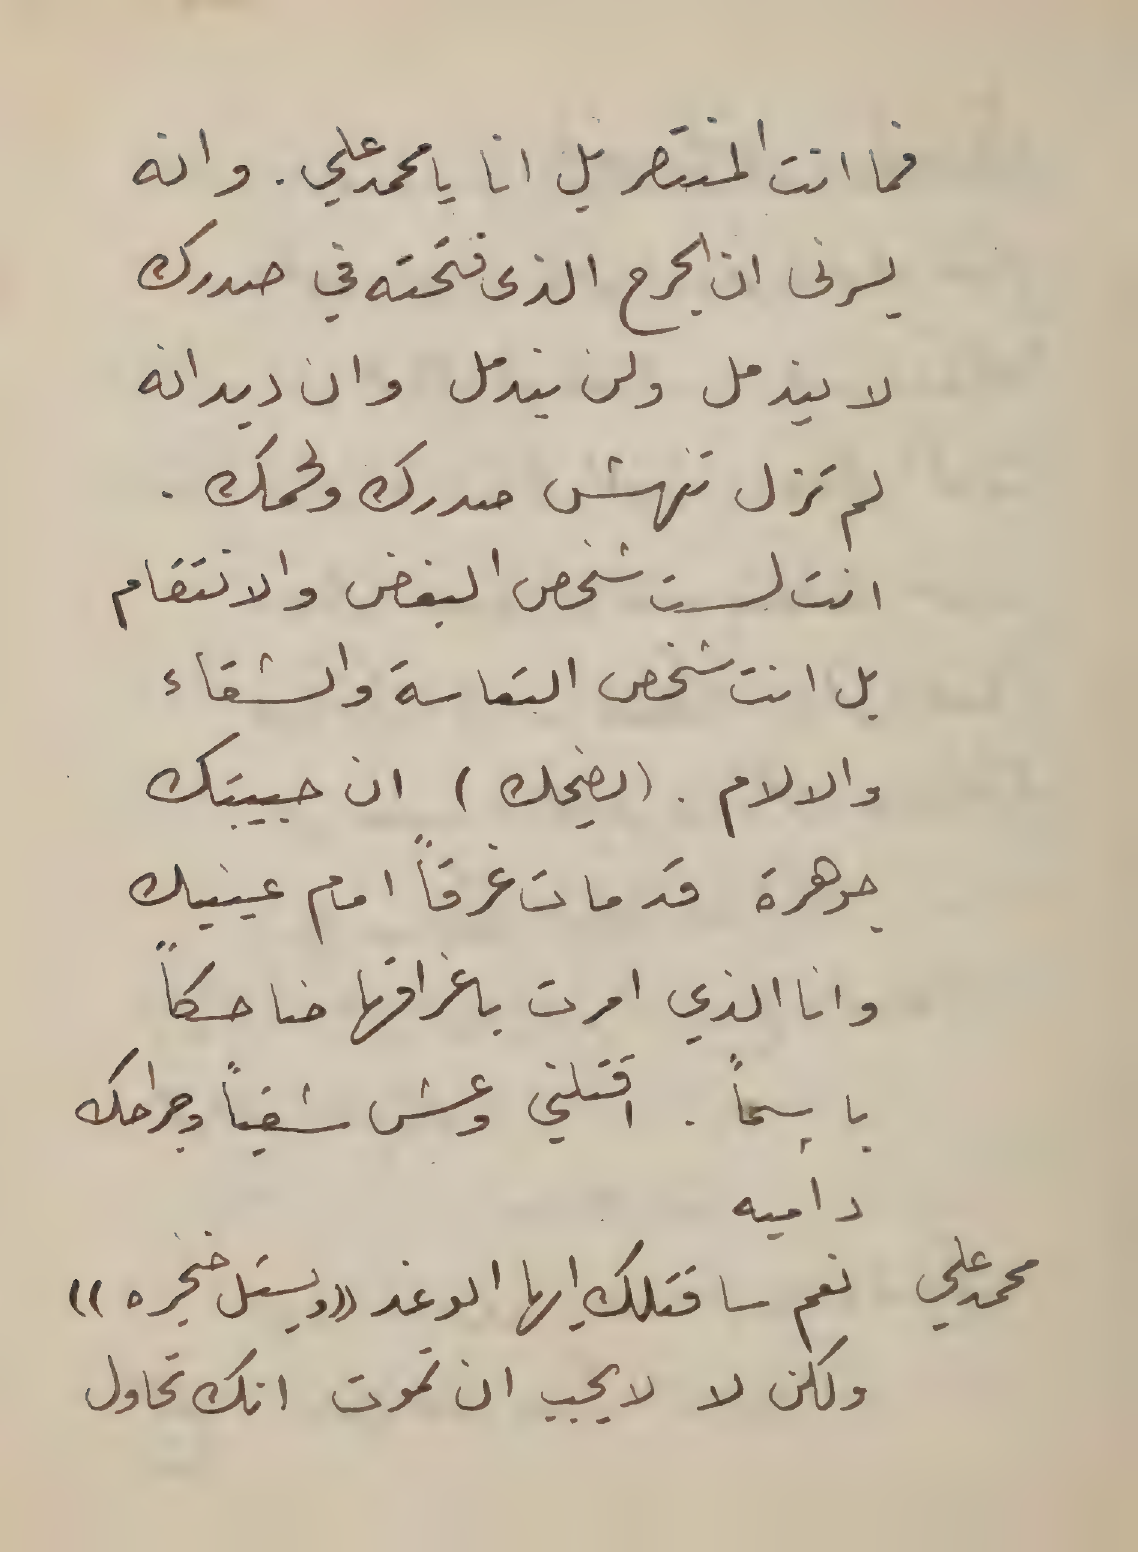 فما انت المنتصر بل انا يا محمد علي . وانه
يسرنى ان الجرح الذى فتحته في صدرك
لا يندمل ولن يندمل وان ديدانه
لم تزل تنهش صدرك ولحمك .
انت لست شخص البغض والانتقام
بل انت شخص التعاسة والشقاء
والالام . (يضحك) ان حبيبتك
جوهرة قد ماتت غرقاً امام عينيك
وانا الذي امرت باغراقها ضاحكاً
باسماً . اقتلني وعش شقياً وجراحك
داميه
محمد علي نعم ساقتلك ايها الوغد ((ويستل خنجره))
ولكن لا لا يجب ان تموت انك تحاول